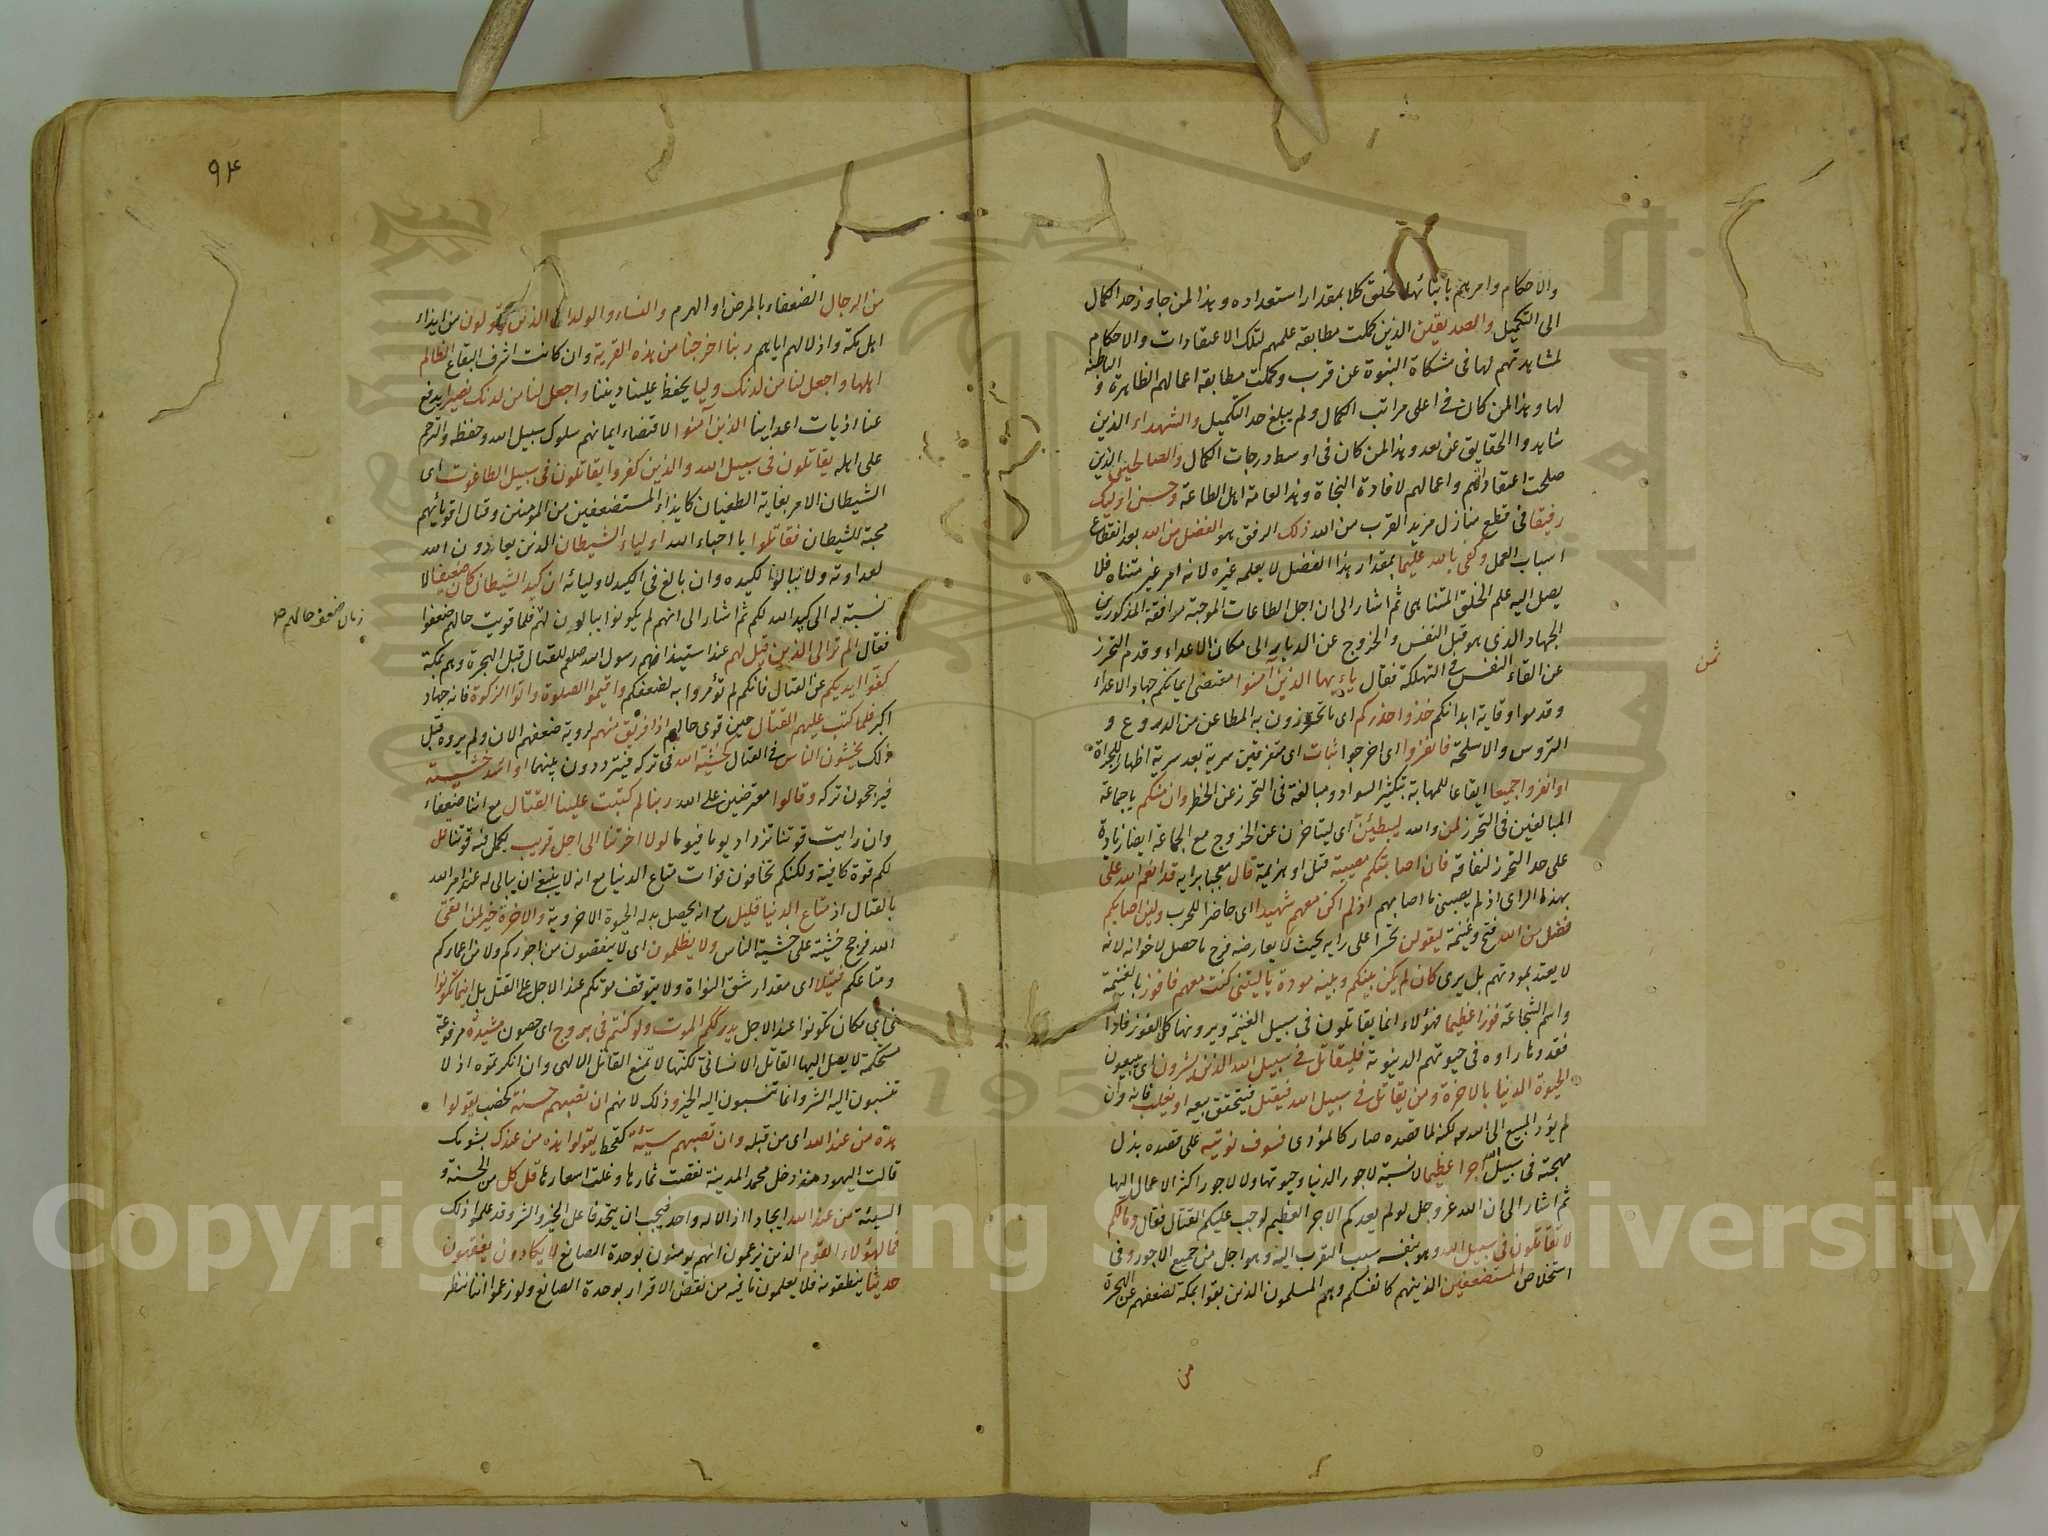 والاحكام وامرهم بانبائها الخلق كلا بمقدار استعداده وهذا لمن جاوز حد الكمال
الى التكميل والصديقين الذين كملت مطابقة علمهم لتلك الاعتقادات والاحكام
لمشاهدتهم لها فى مشكاة النبوة عن قرب وكملت مطابقة اعمالهم الظاهرة و الباطنة
لها وهذا لمن كان فى اعلى مراتب الكمال ولم يبلغ حد التكميل والشهداء الذين
شاهدوا الحقايق عن بعد وهذا لمن كان فى اوسط درجات الكمال والصالحين الذين
صلحت اعتقاداتهم واعمالهم لافادة النجاة وهذا لعامة اهل الطاعة وحسن اوليك
رفيقا فى قطع منازل مزيد القرب من الله ذلك الرفق هو الفضل من الله بعد انقطاع
اسباب العمل وكفى بالله عليما بمقدار هذا الفضل لا يعلمه غيره لانه امر غير متناه فلا
يصل اليه علم الخلق المتناهى ثم اشار الى ان اجل الطاعات الموجبة مرافقة المذكورين
الجهاد الذى هو قبل النفس والخروج عن الديار الى مكان الاعداء وقدم التحرز
عن القاء النفس فى التهلكة فقال يا ايها الذين آمنوا مقتضى ايمانكم جهاد الاعداء
وقدموا وقاية ابدانكم خذوا حذركم اى ما تحرزون به المطاعن من الدروع و
التروس والاسلحة فانفروا اى اخرجوا ثبات اى متفرقين سرية بعد سرية اظهارا للجراة
او انفروا جميعا ايقاعا للمهابة بتكثير السواد ومبالغة فى التحرز عن الخطر وان منكم يا جماعة
المبالغين فى التحرز لمن والله ليبطئن اى ليتاخرن عن الخروج مع الجماعة ايضا زيادة
على حد التحرز لنفاقه فان اصابتكم مصيبة قتل او هزيمة قال معجبا برايه قد انعم الله على
بهذا الراى اذ لم يصبنى ما اصابهم اذ لم اكن معهم شهيدا اى حاضرا للحرب ولئن اصابكم
فضل من الله فتح وغنيمة ليقولن تحسرا على رايه بحيث لا يعارضه فرح ما حصل لاخوانه لانه
لا يعتد بمودتهم بل يرى كان لم يكن بينكم وبينه مودة يا ليتنى كنت معهم فافوز بالغنيمة
واسم الشجاعة فوزا عظيما فهؤلاء انما يقاتلون فى سبيل الغنيمة ويرونها كل الفوز فاذا
فقدوها راوه فى حيوتهم الدنيوية فليقاتل فى سبيل الله الذين يشرون اى يبيعون
الحيوة الدنيا بالاخرة ومن يقاتل فى سبيل الله فيقتل فيتحقق بيعه او يغلب فانه وان
لم يؤد المبيع الى الله لكنه لما قصده صار كالمؤدى فسوف نؤتيه على قصده بذل
مهجته فى سبيل الله اجرا عظيما لا نسبة لاجور الدنيا وحيوتها ولا لاجور اكثر الاعمال اليها
ثم اشار الى ان الله عز وجل لو لم يعدكم الاجر العظيم لوجب عليكم القتال فقال ومالكم
لا تقاتلون فى سبيل الله وهو بنفسه سبب التقرب اليه وهو اجل من جميع الاجور وفى
استخلاص المستضعفين الذين هم كانفسكم وهم المسلمون الذين بقوا بمكة لضعفهم عن الهجرة
من
ثمن
٩٤
من الرجال الضعفاء بالمرض او الهرم والنساء والولدان الذين يقولون من ايذاء
اهل مكة واذلالهم اياهم ربنا اخرجنا من هذه القرية وان كانت اشرف البقاع الظالم
اهلها واجعل لنا من لدنك وليا يحفظ علينا ديننا واجعل لنا من لدنك نصيرا يدفع
عنا اذيات اعداينا الذين آمنوا لاقتضاء ايمانهم سلوك سبيل الله وحفظه والترحم
على اهله يقاتلون فى سبيل الله والذين كفروا يقاتلون فى سبيل الطاغوت اى
الشيطان الامر بغاية الطغيان كايذاء المستضعفين من المومنين وقتال اقويائهم
محبة للشيطان فقاتلوا يا احباء الله اولياء الشيطان الذين يعادون الله
لعداوته ولا تبالوا لكيده وان بالغ فى الكيد لاوليائه ان كيد الشيطان كان ضعيفا لا
نسبة له الى كيد الله لكم ثم اشار الى انهم لم يكونوا يبالون لهم فلما قويت حالهم ضعفوا
زمان ضعف حالهم صح
فقال الم تر الى الذين قيل لهم عند استيذانهم رسول الله صلعم للقتال قبل الهجرة وهم بمكة
كفوا ايديكم عن القتال فانكم لم تؤمروا به لضعفكم واقيموا الصلوة واتوا الزكوة فانه جهاد
اكبر فلما كتب عليهم القتال حين قوى حالهم اذا فريق منهم لروية ضعفهم الان ولم يروه قبل
ذلك يخشون الناس فى القتال كخشية الله فى تركه فيترددون بينهما او اشد خشية
فيرجحون تركه وقالوا معترضين على الله ربنا لم كتبت علينا القتال مع اننا ضعفاء
وان رايت قوتنا تزداد يوما فيوما لولا اخرتنا الى اجل قريب يكمل فيه قوتنا قل
لكم قوة كافية ولكنكم تخافون فوات متاع الدنيا مع انه لا ينبغى ان يبالى له عند امر الله
بالقتال اذ متاع الدنيا قليل مع انه يحصل بدله الحيوة الاخروية والاخرة خير لمن اتقى
الله فرجح خشيته على خشية الناس ولا يظلمون اى لا ينقصون من اجوركم ولا من اعماركم
ومتاعكم فتيلا اى مقدار شق النواة ولا يتوقف موتكم عند الاجل على القتل بل اينما تكونوا
فى اى مكان تكونوا عند الاجل يدرككم الموت ولو كنتم فى بروج اى حصون مشيدة مرفوعة
مستحكمة لا يصل اليها القاتل الانسانى لكنها لا تمنع القاتل الالهى وان انكرتموه اذ لا
تنسبون اليه الشر وانما تنسبون اليه الخير وذلك لانهم ان تصبهم حسنة كخصب يقولوا
هذه من عند الله اى من قبله وان تصبهم سيئة كقحط يقولوا هذه من عندك بشومك
قالت اليهود منذ دخل محمد المدينة نقصت ثمارها وغلت اسعارها قل كل من الحسنة و
السيئة من عند الله ايجادا اذ الاله واحد فيجب ان يتحد فاعل الخير والشر وقد علموا ذلك
فما لهؤلاء القوم الذين يزعمون انهم يومنون بوحدة الصانع لا يكادون يفقهون
حديثا ينطقونه فلا يعلمون ما فيه من نقض الاقرار بوحدة الصانع ولو زعموا اننا ننظر
Copyright © King Saud University
1957